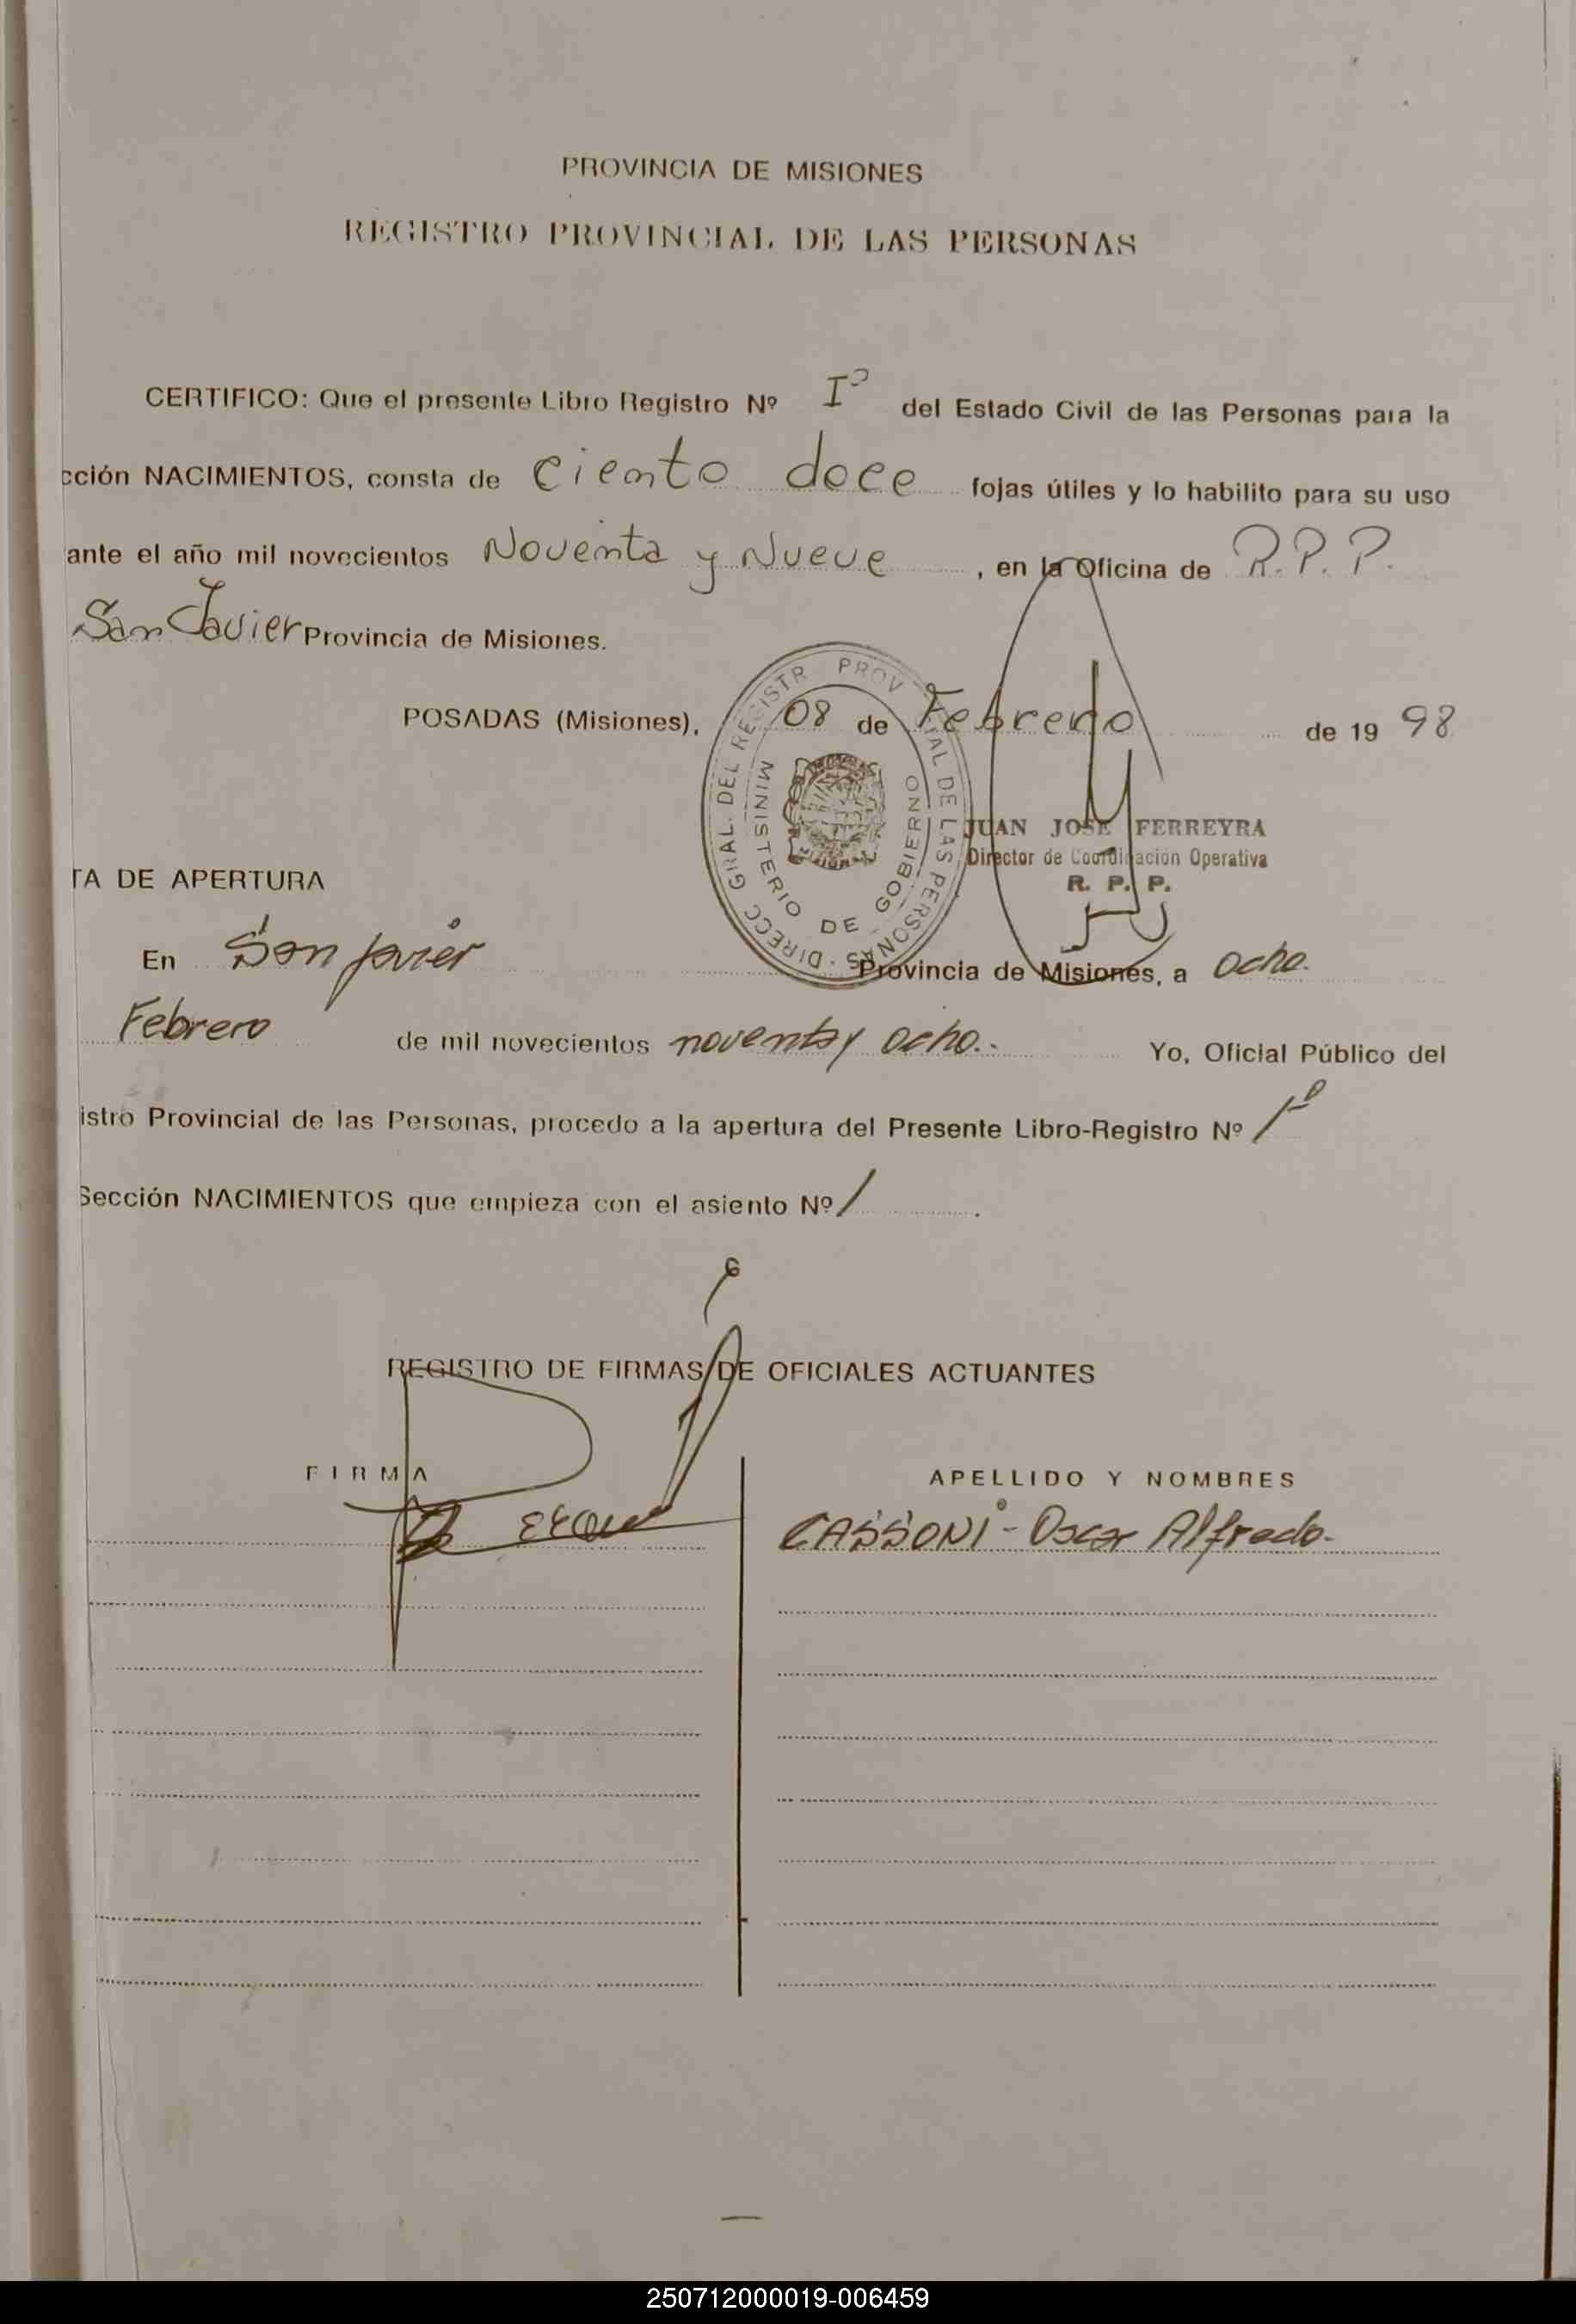 PROVINCIA DE MISIONES
REGISTRO PROVINCIAL DE LAS PERSONAS
CERTIFICO: Que el presente Libro Registro Nº Iº del Estado Civil de las Personas para la
cción NACIMIENTOS, consta de Ciento doce fojas útiles y lo habilito para su uso
ante el año mil novecientos Noventa y Nueve, en la Oficina de R.P.P.
San Javier Provincia de Misiones.
POSADAS (Misiones), 08 de Febrero de 19 98
DIRECC GRAL. DEL REGISTR PROV IAL DE LAS PERSONAS
MINISTERIO DE GOBIERNO
JUAN JOSE FERREYRA
Director de Coordinación Operativa
R. P. P.
TA DE APERTURA
En San Javier Provincia de Misiones, a ocho.
Febrero de mil novecientos noventa y ocho.. Yo, Oficial Público del
istro Provincial de las Personas, procedo a la apertura del Presente Libro-Registro Nº 1º
Sección NACIMIENTOS que empieza con el asiento Nº 1.
REGISTRO DE FIRMAS DE OFICIALES ACTUANTES
FIRMA APELLIDO Y NOMBRES
CASSONI - Oscar Alfredo.-
250712000019-006459